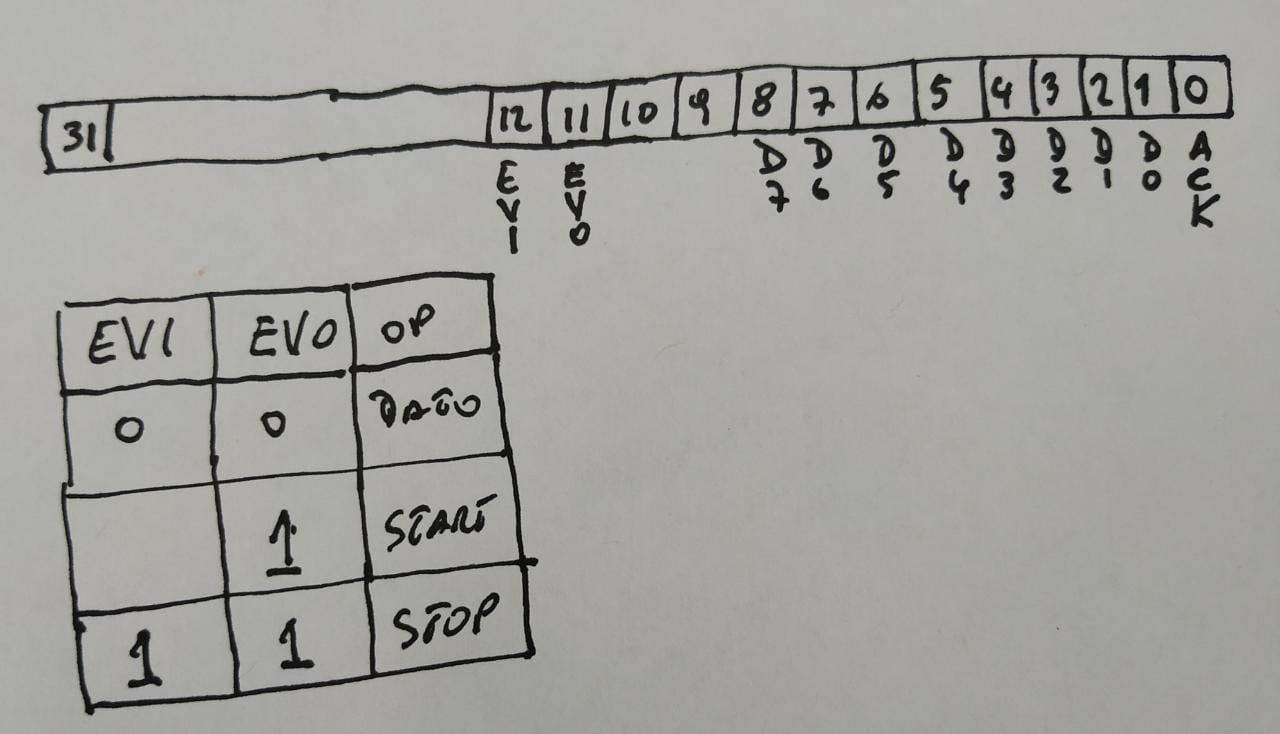 31 12 11 10 9 8 7 6 5 4 3 2 1 0
EV1 EV0 D7 D6 D5 D4 D3 D2 D1 D0 ACK
EV1 EV0 OP
0 0 DATO
1 START
1 1 STOP